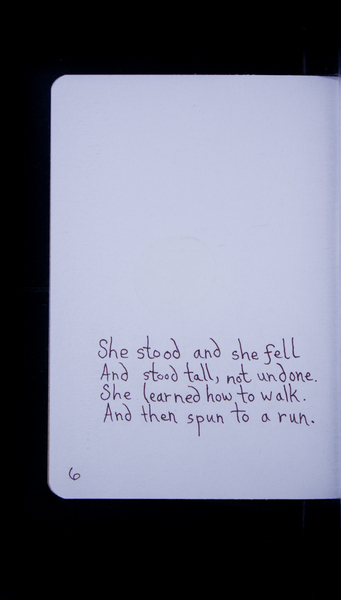 She stood and she fell
And stood tall, not undone.
She learned how to walk.
And then spun to a run.
6